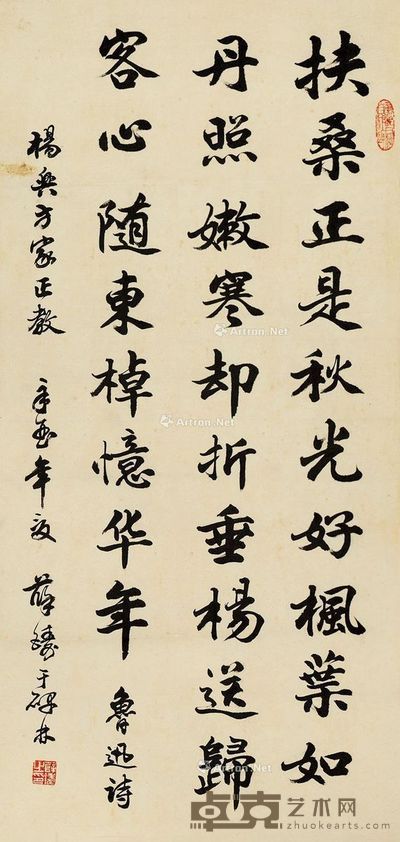 扶桑正是秋光好楓葉如
丹照嫩寒却折垂楊送歸
客心随東棹憶华年
魯迅詩
楊興方家正教
辛酉年夏
薛鑄于碑林
Artron.Net
Artron.Net
Artron.Net
Artron.Net
卓克艺术网
zhuokearts.com